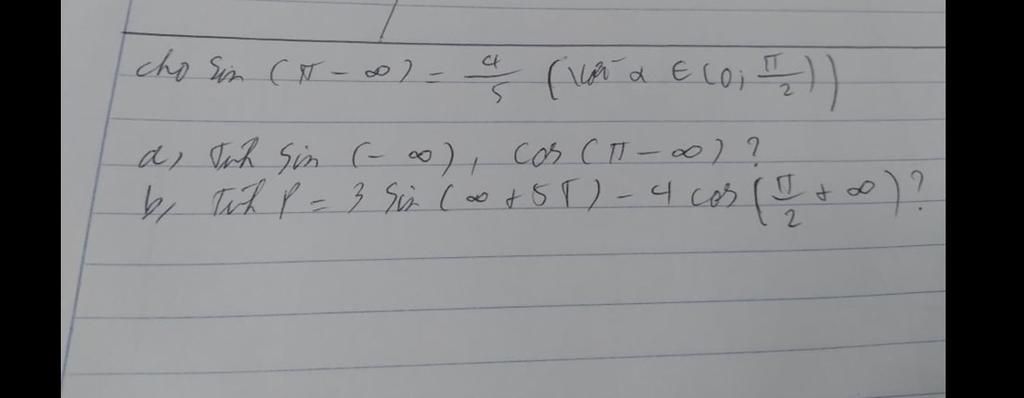 cho sin (π - ∞) = 4/5 (với α ∈ (0; π/2))
a, Tính sin (- ∞), cos (π - ∞) ?
b, Tính P = 3 sin (∞ + 5π) - 4 cos (π/2 + ∞) ?